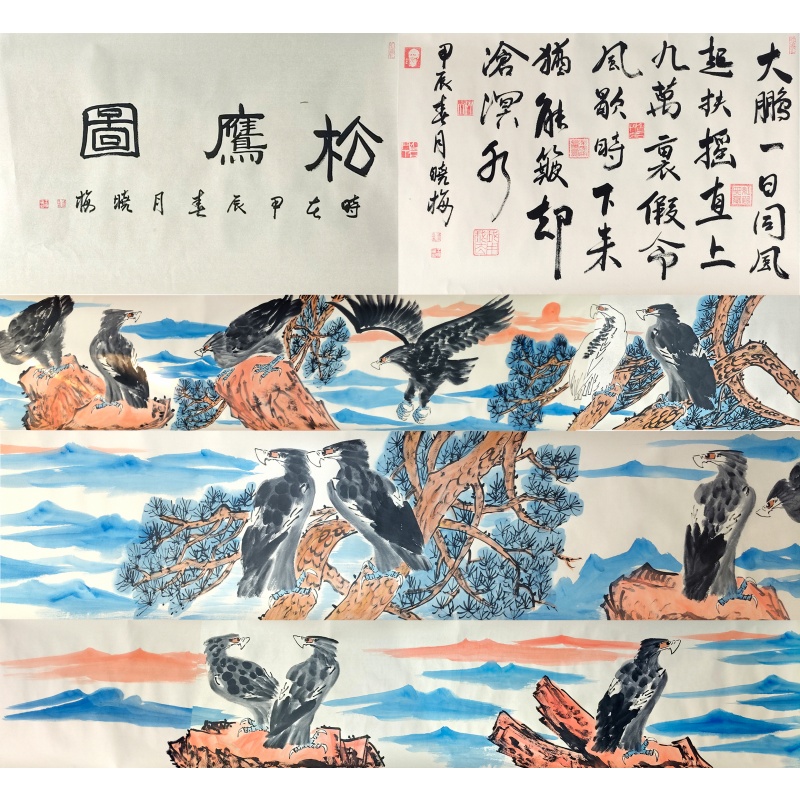 松鷹圖
時在甲辰春月曉梅
大鹏一日同風
起扶摇直上
九萬裏假令
風歇時下来
猶能簸却
滄溟水
甲辰春月曉梅